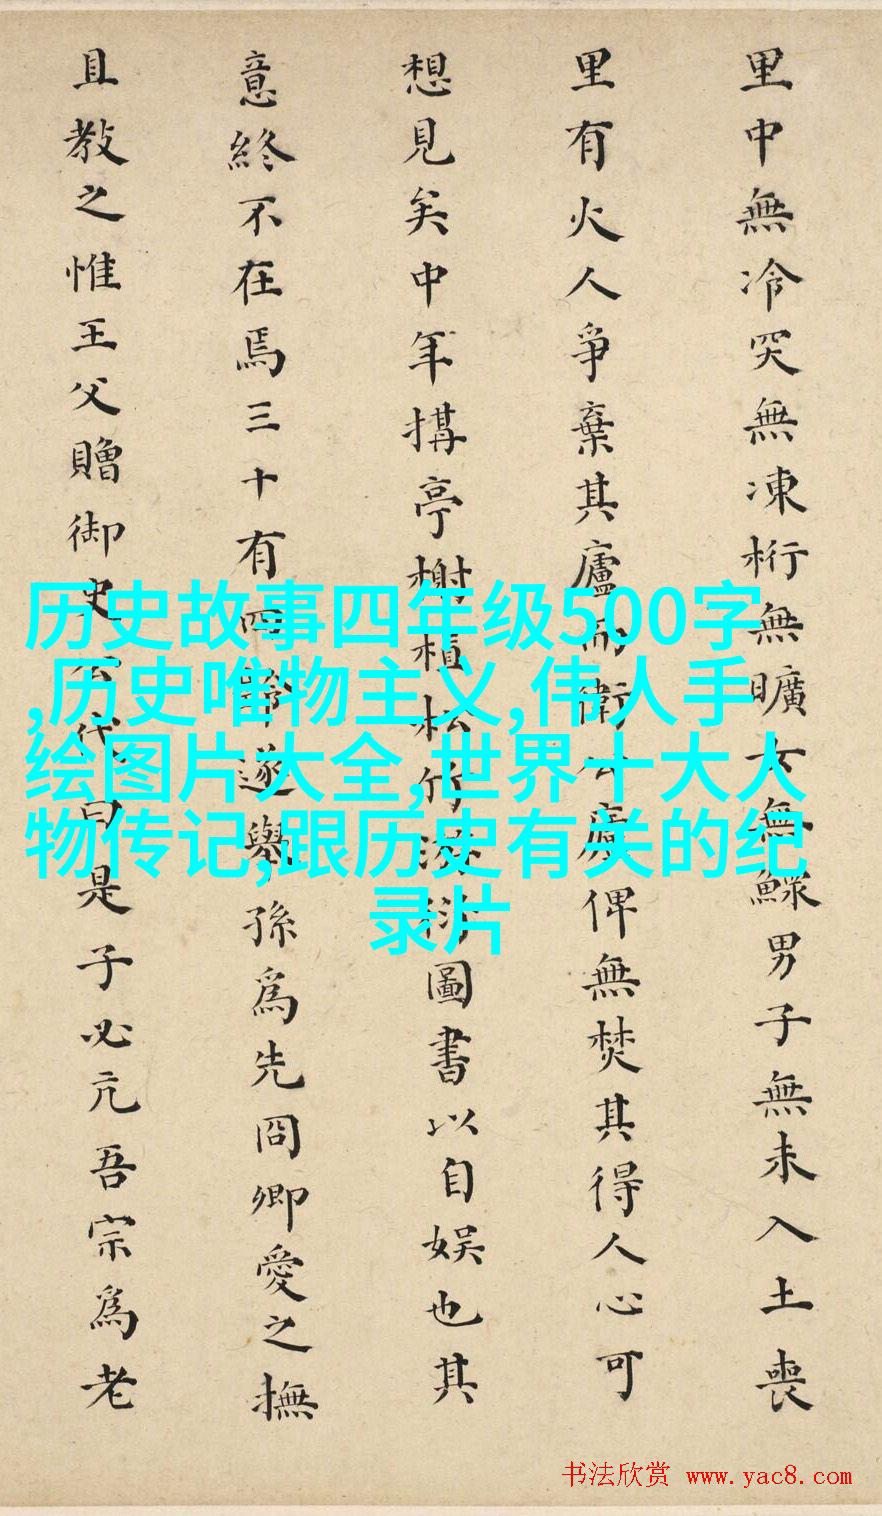 里中無冷突無凍桁無曠女無鰥男子無未入土喪
里有火人爭棄其廬而衛公廨俾無焚其得人心可
想見矣中年搆亭榭植松竹游衍圖書以自娱也其
意終不在焉三十有四齡遂舉孫爲先冏卿愛之撫
且教之惟王父贈御史公代曰是子必亢吾宗爲老
历史故事四年级500字
,历史唯物主义,伟人手
绘图片大全,世界十大人
物传记,跟历史有关的纪
录片
书法欣赏 www.yac8.com